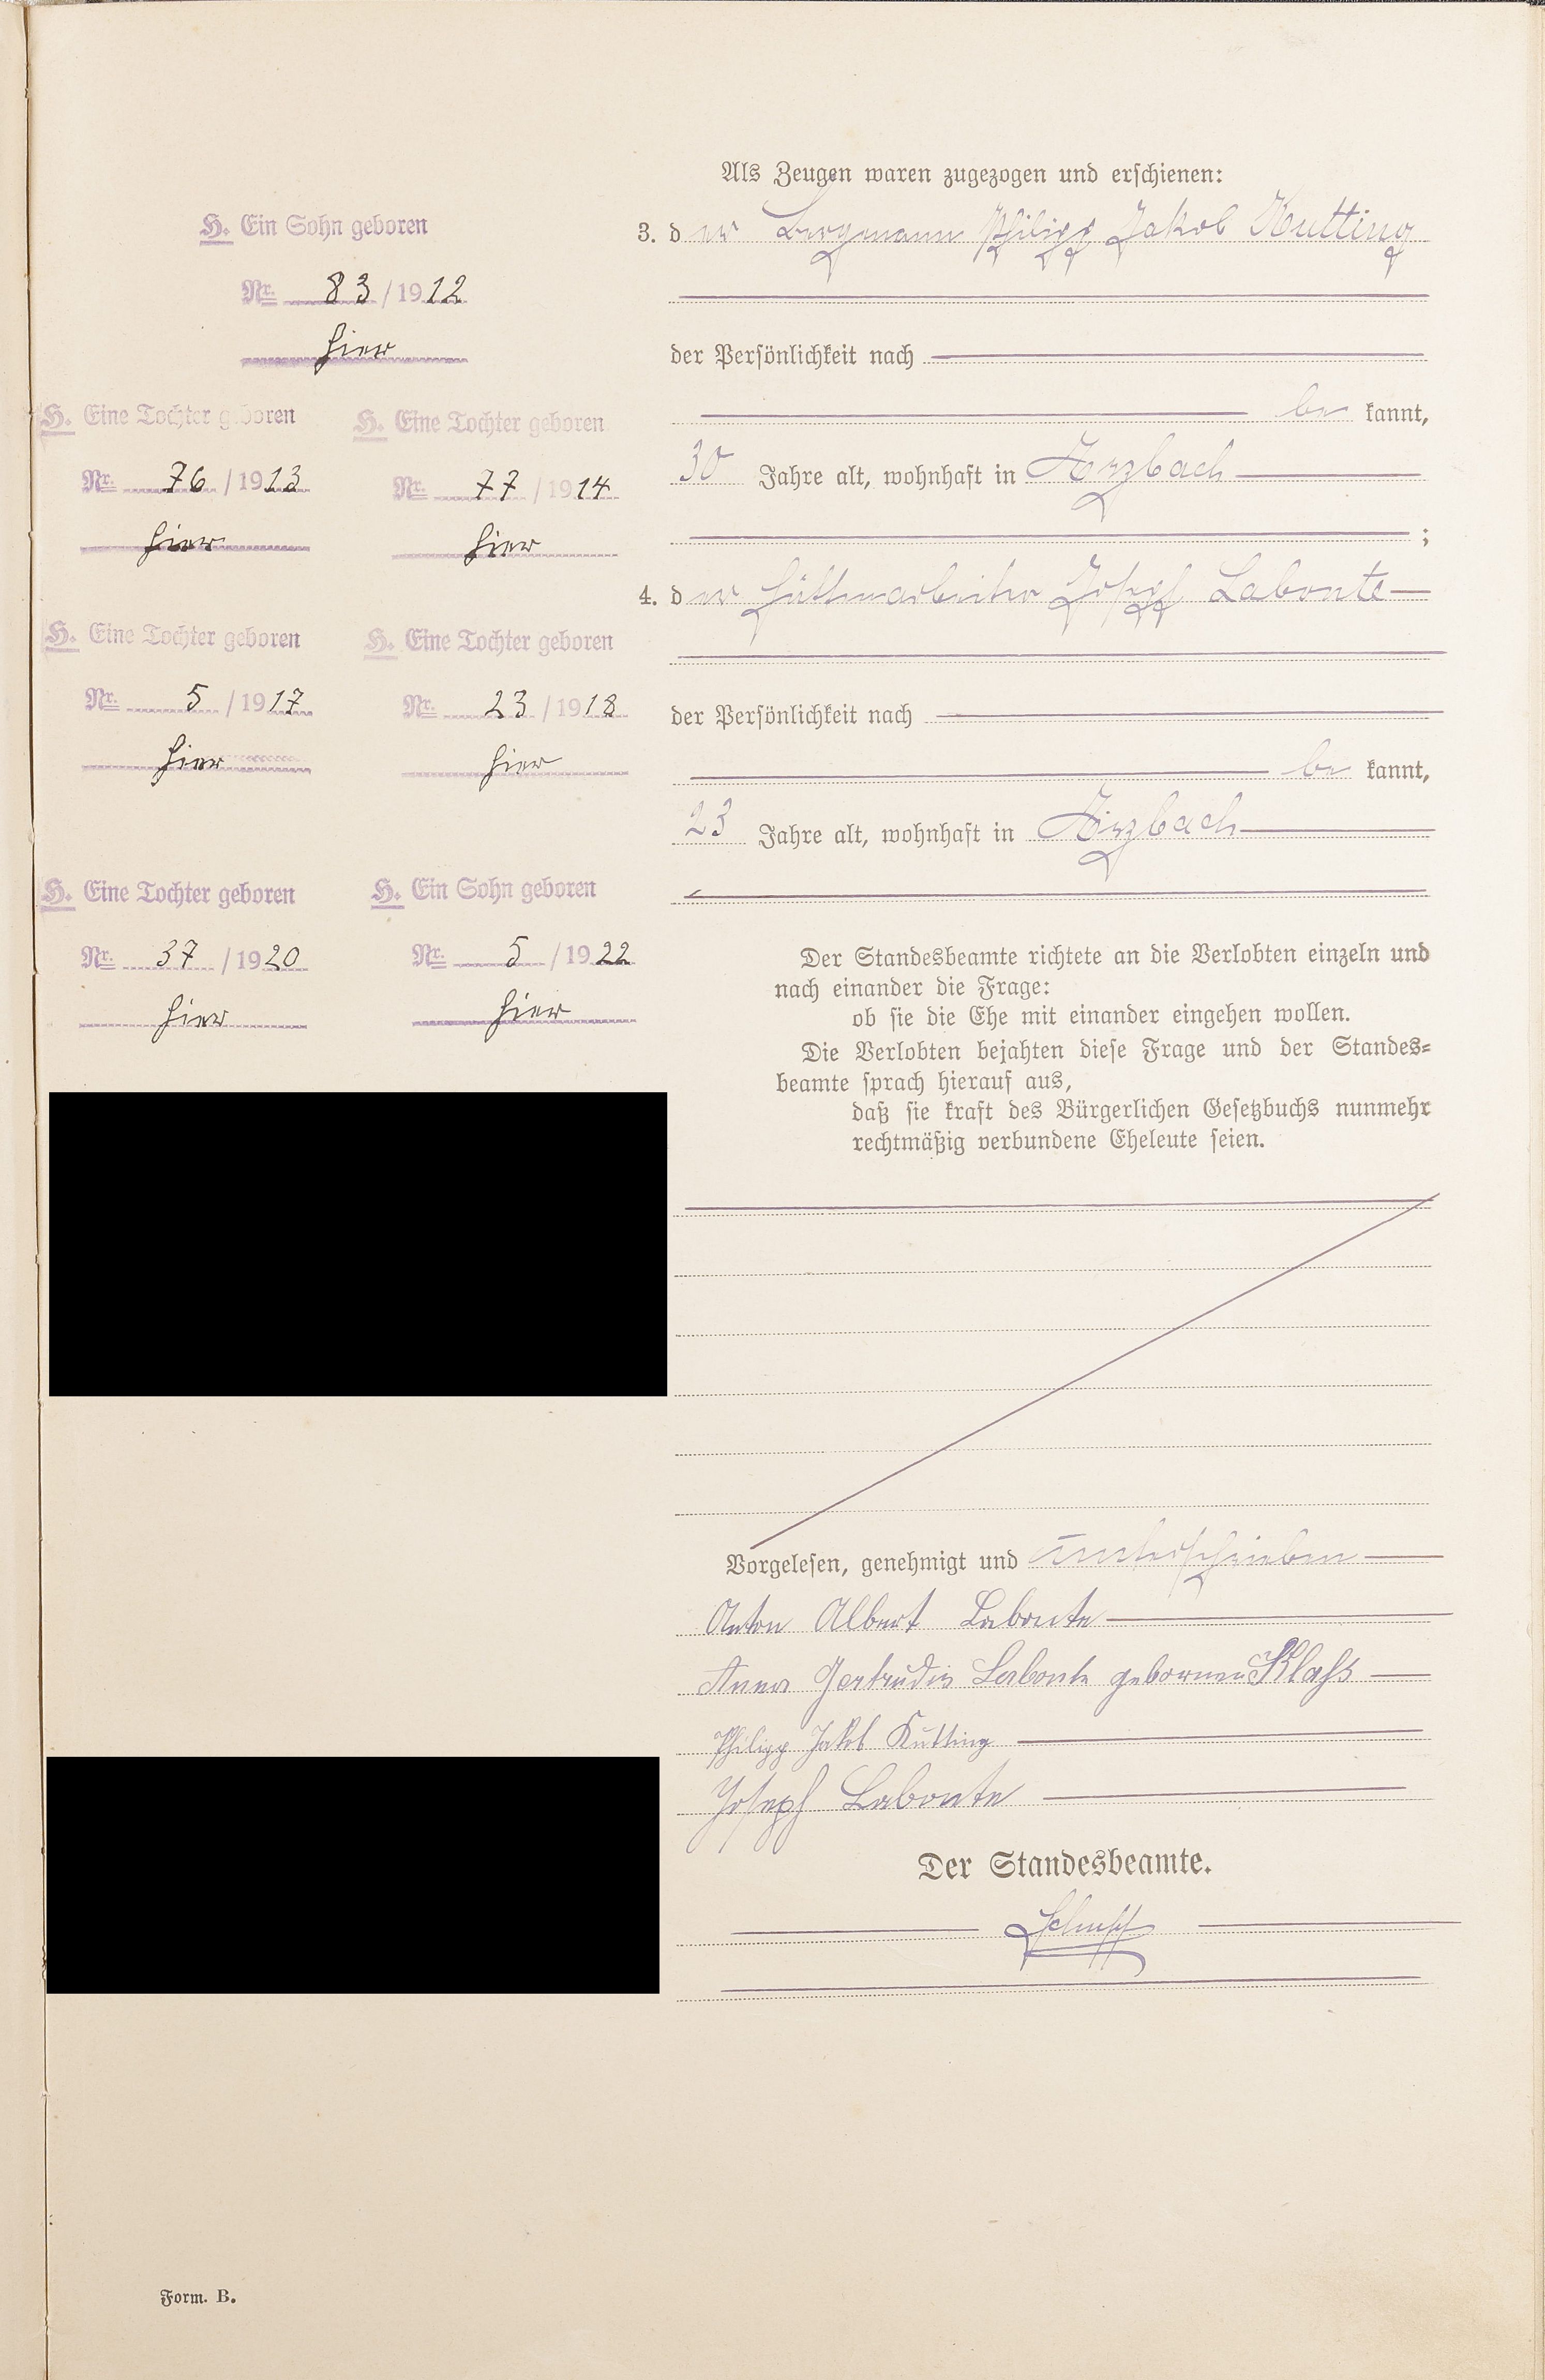 H. Ein Sohn geboren
Nr. 83/1912
hier
H. Eine Tochter geboren
Nr. 76/1913
hier
H. Eine Tochter geboren
Nr. 77/1914
hier
H. Eine Tochter geboren
Nr. 5/1917
hier
H. Eine Tochter geboren
Nr. 23/1918
hier
H. Eine Tochter geboren
Nr. 37/1920
hier
H. Ein Sohn geboren
Nr. 5/1922
hier
Als Zeugen waren zugezogen und erschienen:
3. der Bergmann Philipp Jakob Kutting
der Persönlichkeit nach
be kannt,
30 Jahre alt, wohnhaft in Arzbach
;
4. der Hüttenarbeiter Josef Labonte
der Persönlichkeit nach
be kannt,
23 Jahre alt, wohnhaft in Arzbach
Der Standesbeamte richtete an die Verlobten einzeln und
nach einander die Frage:
ob sie die Ehe mit einander eingehen wollen.
Die Verlobten bejahten diese Frage und der Standes=
beamte sprach hierauf aus,
daß sie kraft des Bürgerlichen Gesetzbuchs nunmehr
rechtmäßig verbundene Eheleute seien.
Vorgelesen, genehmigt und unterschrieben
Anton Albert Labonte
Anna Gertrudis Labonte geborne Klaß
Philipp Jakob Kutting
Joseph Labonte
Der Standesbeamte.
Form. B.